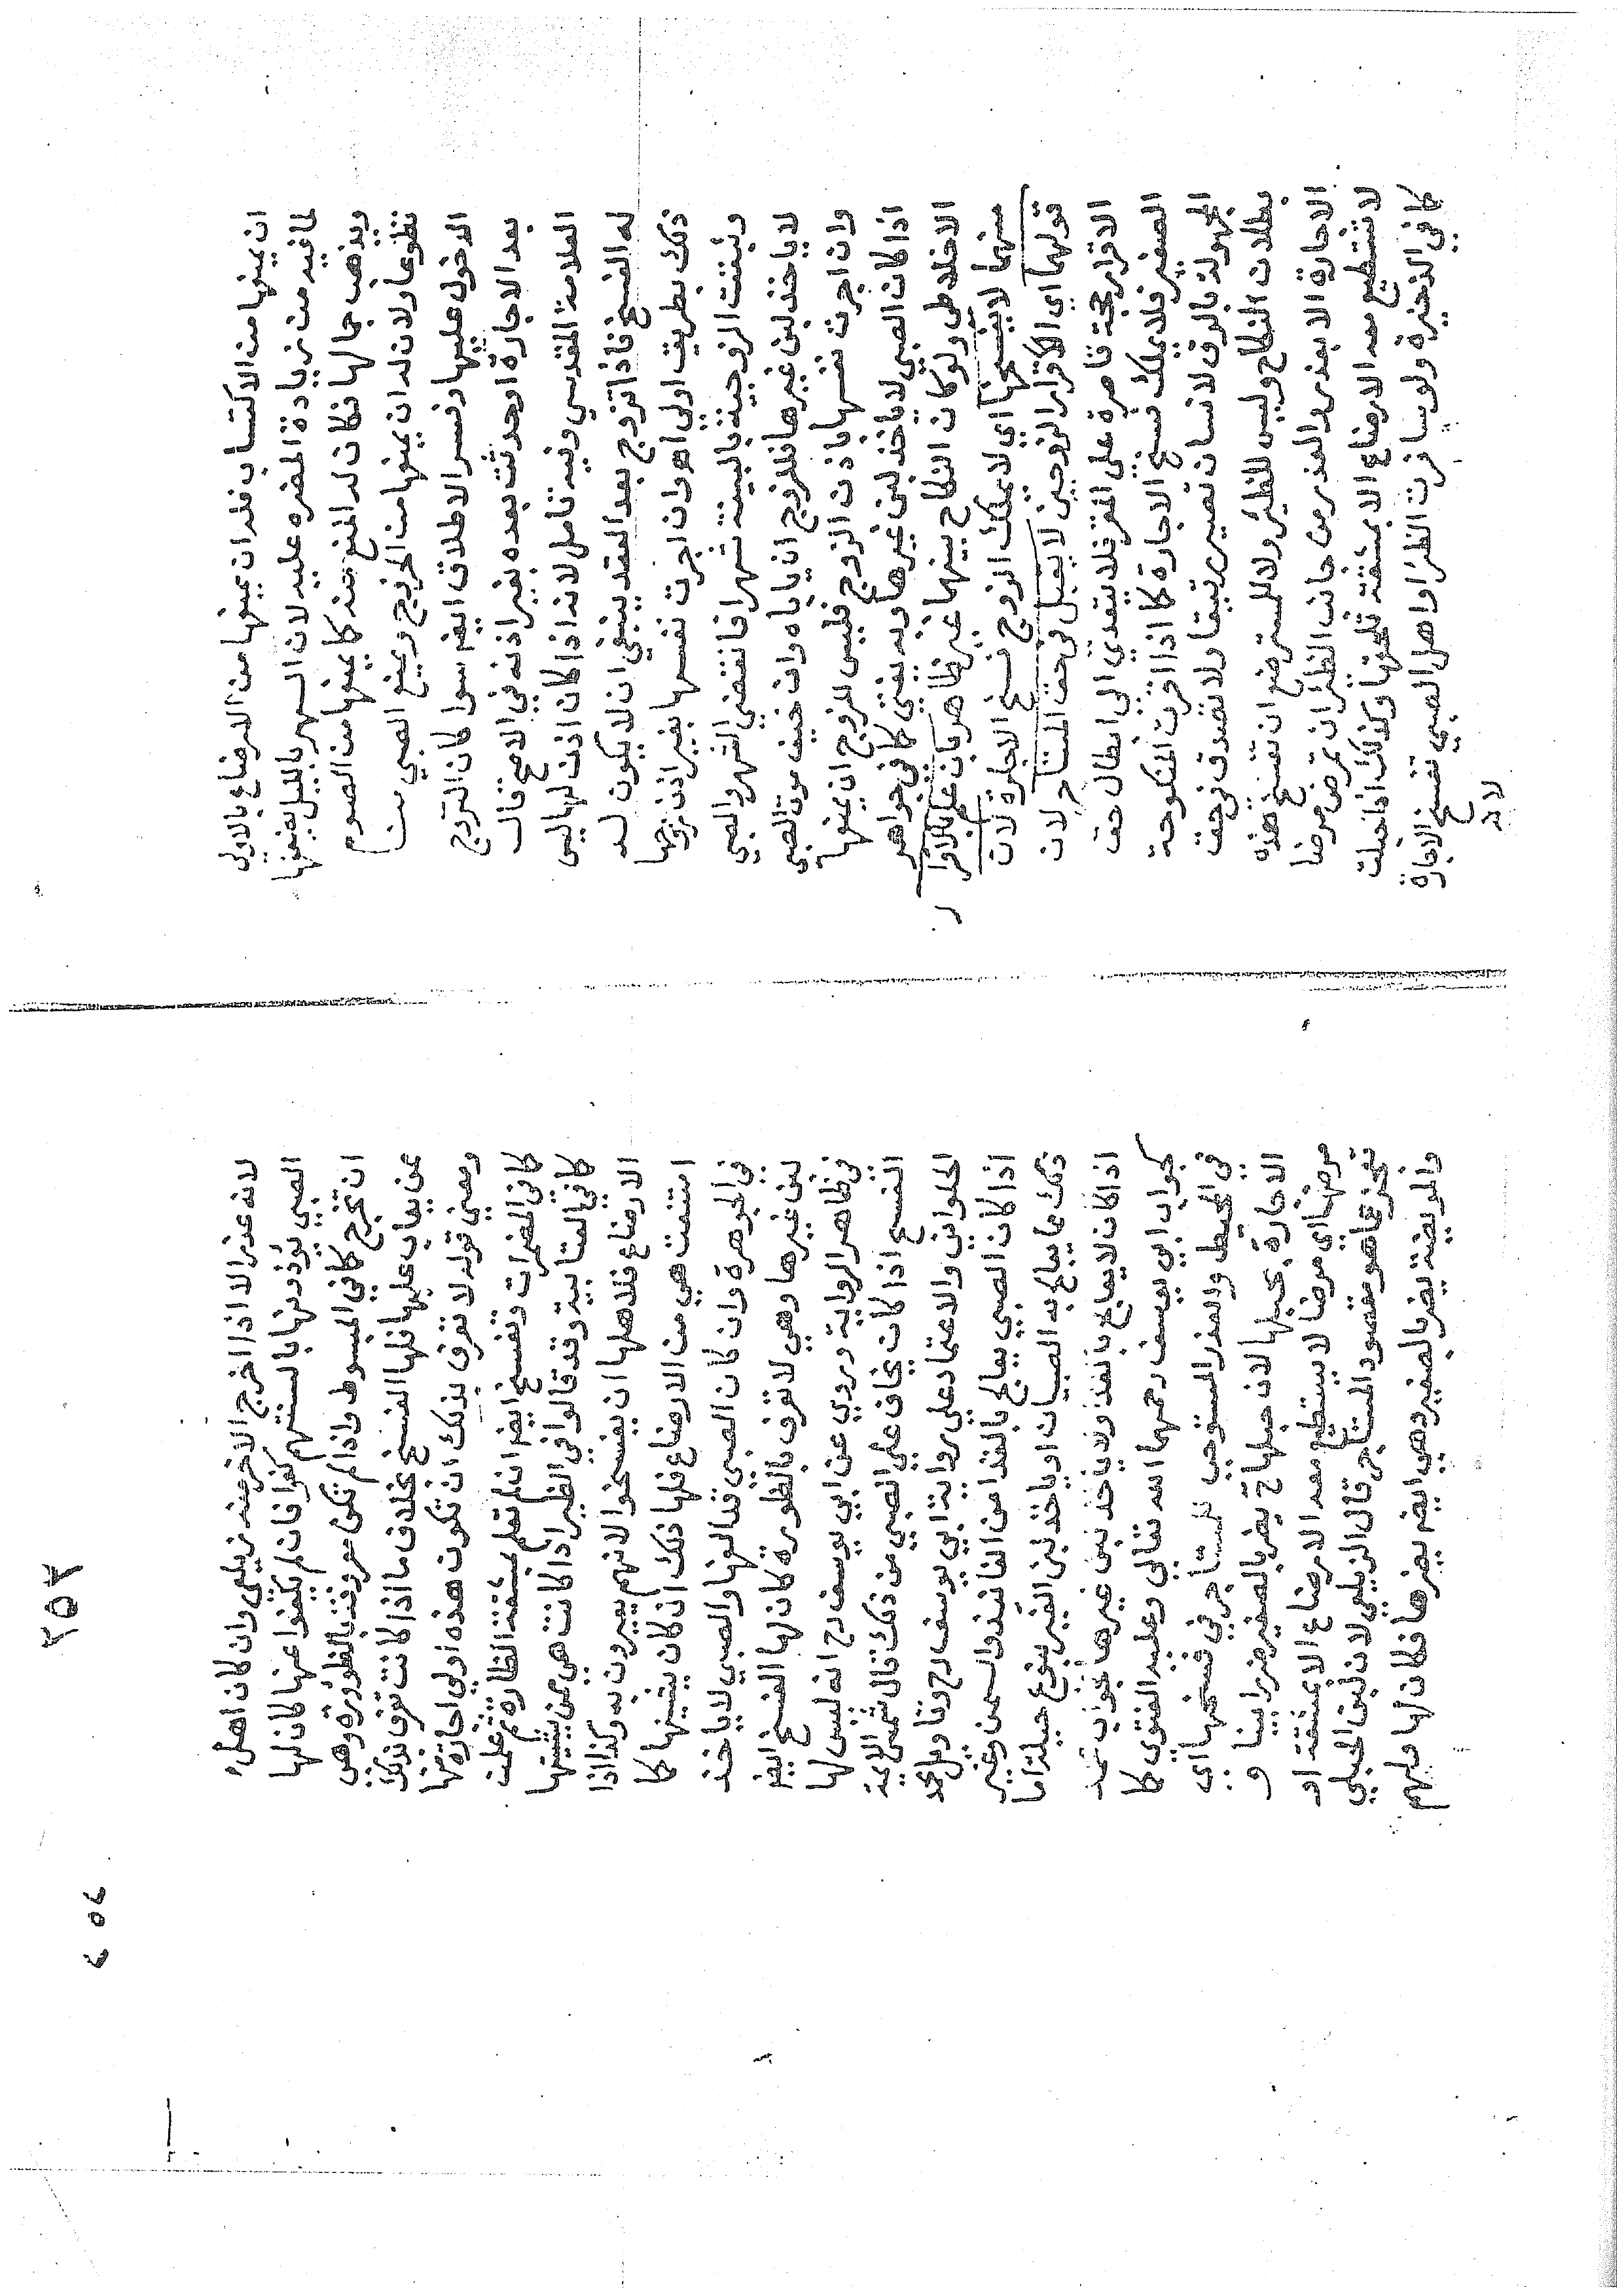 ان يمنعها من الاكتساب فله ان يمنعها من الارضاع بالاولى
لما فيه من زيادة المضره عليه لان السهر بالليل يضعفها
ويذهب جمالها فكان له المنع منه كما يمنعها من الصوم
تطوعا ولان له ان يمنعها من الخروج ويمنع الصبي من
الدخول عليها وفسر الاطلاق ايضا سوا كان التزوج
بعد الاجارة او حدثت بعده بغير اذنه في الاصح قال
العلامة المقدسي وفيه تامل لانه اذا كان اذن لها ليس
له الفسخ فاذا تزوج بعد العقد ينبغي ان لا يكون له
ذلك بطريق اولى اهـ وان اجرت نفسها بغير اذن زوجها
وثبتت الزوجية بالبينة شهرا فانقضى الشهر والصبي
لا ياخذ لبن غيرها فللزوج ان ياباه وان خيف موت الصبي
وان اجرت نفسها باذن الزوج فليس للزوج ان يمنعها
اذا كان الصبي لا ياخذ لبن غيرها وبه يفتي كما في جواهر
الاخلاطي ولو كان النكاح بينهما غير ظاهر بان علم بالاقرار
منهما لا يفسخها اي لا يملك الزوج فسخ الاجارة لان
قولهما اي الاقرار الزوجين لا يقبل في حق المستاجر لان
الاقرار حجة قاصرة على المقر فلا يتعدي الى ابطال حق
الصغير فلا يملك فسخ الاجارة كما اذا اقرت المنكوحة
المجهولة بالرق لانسان تصير رقيقا ولا تصدق في حق
بطلان النكاح وليس للظئر ولا للمسترضع ان تفسخ هذه
الاجارة الا بعذر والعذر من جانب الظئر ان تمرض مرضا
لا تستطيع معه الارضاع الا بمشقة تلحقها وكذلك اذا حبلت
كما في الذخيرة ولو سافرت الظئر او اهل الصبي تفسخ الاجارة
لانه
لانه عذر الا اذا اخرج الاخر منه زيلعي وان كان اهل
الصبي يؤذونها بالسنتهم كفوا فان لم يكفوا عنها كان لها
ان تخرج كما في المبسوط واذا لم تكن معروفة بالظؤرة وهي
ممن يعاب عليها فلها الفسخ بخلاف ما اذا كانت تعرف بذلك
ومعني قوله لا تعرف بذلك ان تكون هذه اولى اجارة منها
كما في المضمرات وتفسخ ايضا ان لم تعلم بمشقة الظئارة ثم علمت
كما في العتابية وقد قالوا في الظئر اذا كانت هي ممن يشينها
الارضاع فلاهلها ان يفسخوا لانهم يعيرون به وكذا اذا
امتنعت هي من الارضاع فلها ذلك ان كان يشينها كما
في الجوهرة وان كان الصبي قد الفها والصبي لا ياخذ
لبن غيرها وهي لا تعرف بالظورة كان لها الفسخ ايضا
في ظاهر الرواية وروي عن ابي يوسف رح انه ليس لها
الفسخ اذا كان يخاف على الصبي من ذلك قال شمس الايمة
الحلواني والاعتماد على رواية ابي يوسف رح وتاويل محمد
اذا كان الصبي يعالج بالغذا من الفانيذ والسمن وغير
ذلك مما يعالج به الصبيان او ياخذ لبن الغير بنوع حيلة اما
اذا كان لا يعالج بالغذا ولا ياخذ لبن غيرها فجواب محمد
كجواب ابي يوسف رحمهما الله تعالى وعليه الفتوى كما
في المحيط والعذر المستوجب للمستاجر في فسخها اي
الاجارة بحبلها لان حبلها يضر بالصغير ضررا بينا و
مرضها اي مرضا لا يستطيع معه الارضاع الا بمشقة او
تعجز عما هو مقصود المستاجر قال الزيلعي لان لبن الحبلى
والمريضة يضر بالصغير وهي ايضا يضرها فكان لها ولهم
٢٥٧